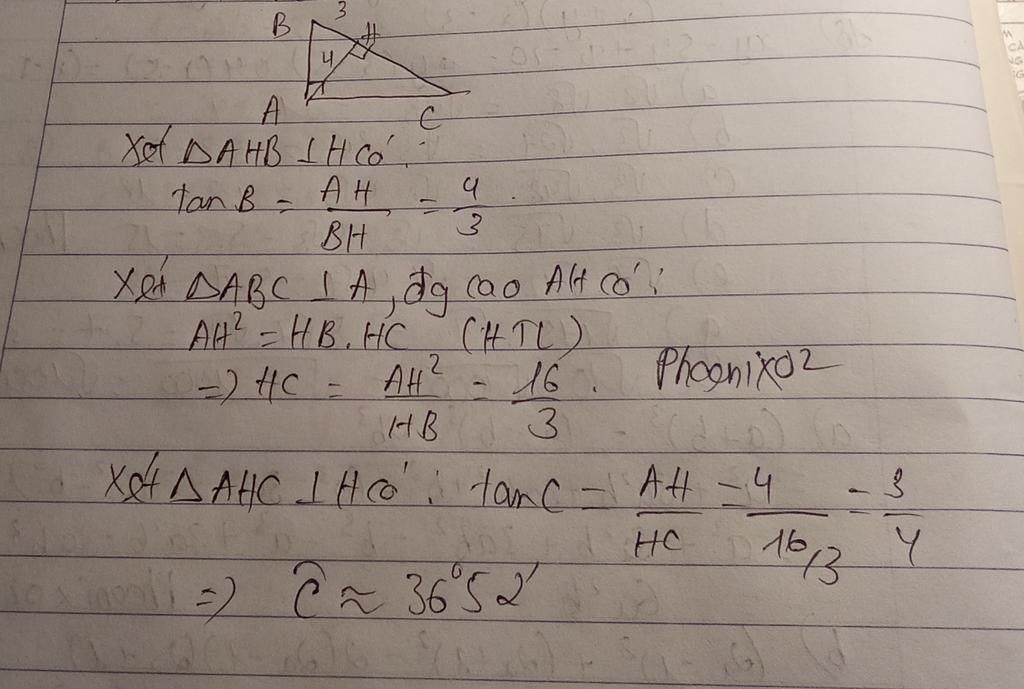 B 3 H
4
A C
Xét ΔAHB ⊥ H có:
tan B = AH/BH = 4/3.
Xét ΔABC ⊥ A, đg cao AH có:
AH² = HB.HC (HTL)
=) HC = AH²/HB = 16/3. Phoenix02
Xét ΔAHC ⊥ H có: tan C = AH/HC = 4/16/3 = 3/4
=) Ĉ ≈ 36°52'